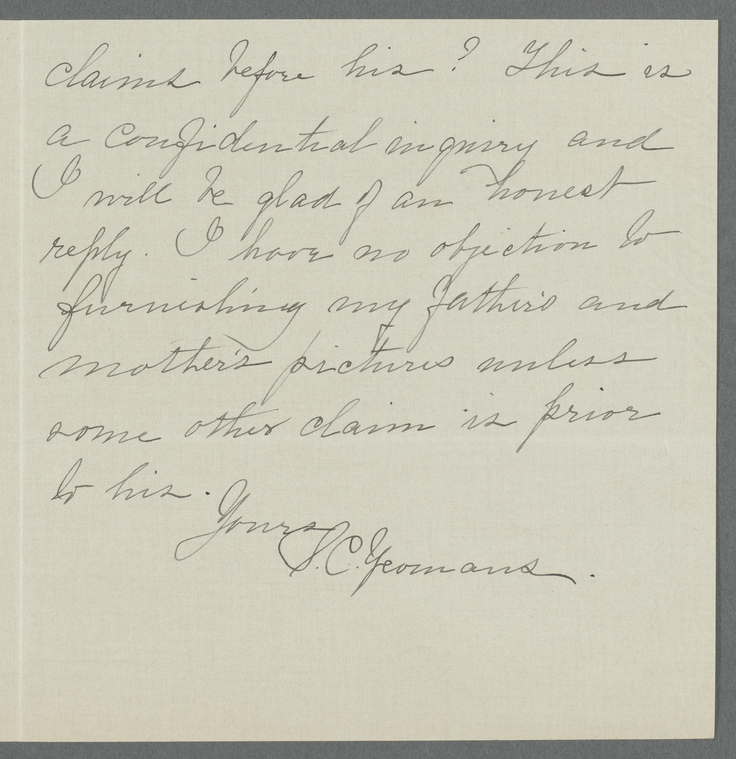 claims before his? This is
a confidential inquiry and
I will be glad of an honest
reply. I have no objection to
furnishing my father's and
mother's pictures unless
some other claim is prior
to his.
Yours
S. C. Yeomans.